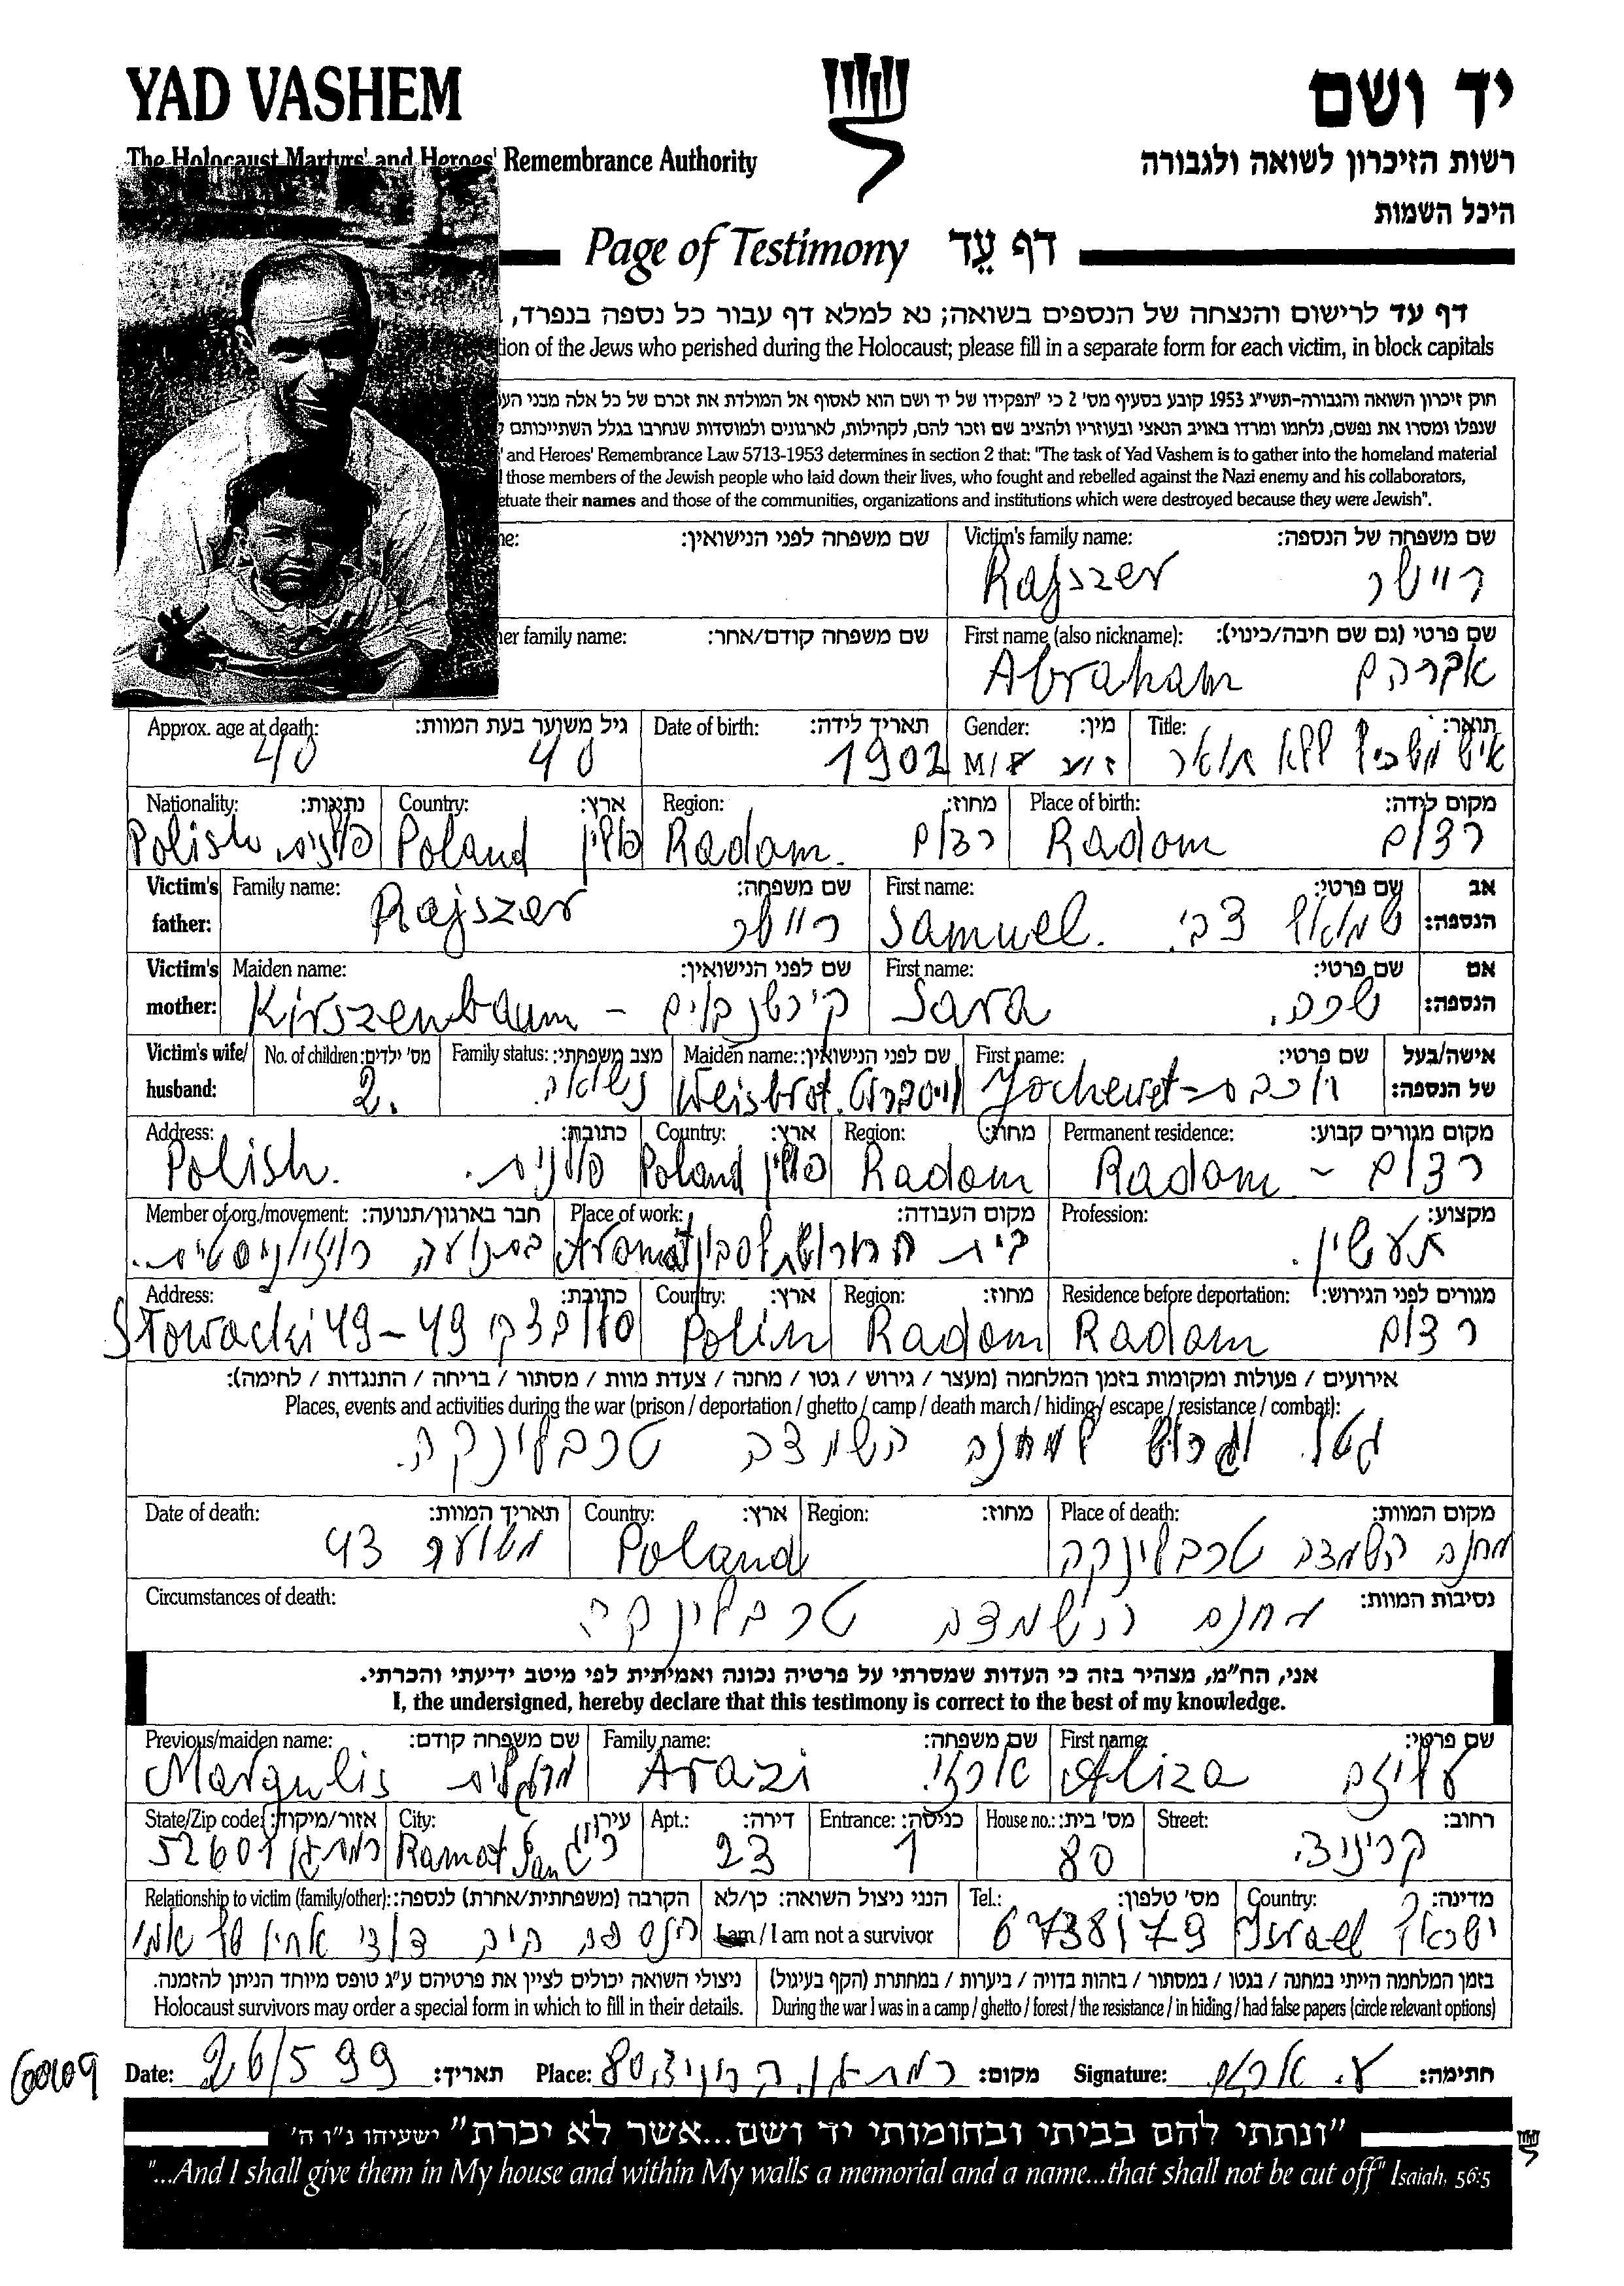 YAD VASHEM
יד ושם
The Holocaust Martyrs' and Heroes' Remembrance Authority
רשות הזיכרון לשואה ולגבורה
היכל השמות
Page of Testimony דף עֵד
דף עד לרישום והנצחה של הנספים בשואה; נא למלא דף עבור כל נספה בנפרד,
tion of the Jews who perished during the Holocaust; please fill in a separate form for each victim, in block capitals
חוק זיכרון השואה והגבורה-תשי"ג 1953 קובע בסעיף מס' 2 כי "תפקידו של יד ושם הוא לאסוף אל המולדת את זכרם של כל אלה מבני
שנפלו ומסרו את נפשם, נלחמו ומרדו באויב הנאצי ובעוזריו ולהציב שם וזכר להם, לקהילות, לארגונים ולמוסדות שנחרבו בגלל השתייכותם
and Heroes' Remembrance Law 5713-1953 determines in section 2 that: "The task of Yad Vashem is to gather into the homeland material
those members of the Jewish people who laid down their lives, who fought and rebelled against the Nazi enemy and his collaborators,
etuate their names and those of the communities, organizations and institutions which were destroyed because they were Jewish".
שם משפחה לפני הנישואין: Victim's family name: שם משפחה של הנספה:
Rajszer ריישר
er family name: שם משפחה קודם/אחר: First name (also nickname): שם פרטי (גם שם חיבה/כינוי):
Abraham אברהם
Approx. age at death: גיל משוער בעת המוות: Date of birth: תאריך לידה: Gender: מין: Title: תואר:
40 40 1902 M/F ז/נ איש משכיל ללא תואר
Nationality: נתינות: Country: ארץ: Region: מחוז: Place of birth: מקום לידה:
Polish פולנית Poland פולין Radom. רדום Radom רדום
Victim's father: Family name: שם משפחה: First name: שם פרטי: אב הנספה:
Rajszer ריישר Samuel. שמואל צבי
Victim's mother: Maiden name: שם לפני הנישואין: First name: שם פרטי: אם הנספה:
Kirszenbaum - קירשנבוים Sara שרה
Victim's wife/ husband: No. of children: מס' ילדים: Family status: מצב משפחתי: Maiden name: שם לפני הנישואין: First name: שם פרטי: אישה/בעל של הנספה:
2. נשוי Weisbrot. וויסברוט Jochewet - יוכבת
Address: כתובת: Country: ארץ: Region: מחוז: Permanent residence: מקום מגורים קבוע:
Polish. פולנית. Poland פולין Radom Radom - רדום
Member of org./movement: חבר בארגון/תנועה: Place of work: מקום העבודה: Profession: מקצוע:
בתנועה רויזיוניסטית. Aromat בית חרושת לסבון תעשין.
Address: כתובת: Country: ארץ: Region: מחוז: Residence before deportation: מגורים לפני הגירוש:
Słowacki 49 - 49 סלובצקי Polin Radom Radom רדום
אירועים / פעולות ומקומות בזמן המלחמה (מעצר / גירוש / גטו / מחנה / צעדת מוות / מסתור / בריחה / התנגדות / לחימה):
Places, events and activities during the war (prison / deportation / ghetto / camp / death march / hiding / escape / resistance / combat):
גטו. וגרוש למחנה השמדה טרבלינקה.
Date of death: תאריך המוות: Country: ארץ: Region: מחוז: Place of death: מקום המוות:
משוער 43 Poland מחנה השמדה טרבלינקה
Circumstances of death: נסיבות המוות:
מחנה השמדה טרבלינקה
אני, הח"מ, מצהיר בזה כי העדות שמסרתי על פרטיה נכונה ואמיתית לפי מיטב ידיעתי והכרתי.
I, the undersigned, hereby declare that this testimony is correct to the best of my knowledge.
Previous/maiden name: שם משפחה קודם: Family name: שם משפחה: First name: שם פרטי:
Margulis מרגליות Arazi ארזי Aliza עליזה
State/Zip code: אזור/מיקוד: City: עיר: Apt.: דירה: Entrance: כניסה: House no.: מס' בית: Street: רחוב:
52601 רמת גן Ramat Gan ר"ג 23 1 80 קריניצי
Relationship to victim (family/other): הקרבה (משפחתית/אחרת) לנספה: הנני ניצול השואה: כן/לא Tel.: מס' טלפון: Country: מדינה:
הנספה היה דודי אחיו של אמי I am / I am not a survivor 6738179 Israel ישראל
ניצולי השואה יכולים לציין את פרטיהם ע"ג טופס מיוחד הניתן להזמנה. בזמן המלחמה הייתי במחנה / בגטו / במסתור / בזהות בדויה / ביערות / במחתרת (הקף בעיגול)
Holocaust survivors may order a special form in which to fill in their details. During the war I was in a camp / ghetto / forest / the resistance / in hiding / had false papers (circle relevant options)
Date: 26/5 99 תאריך: Place: רמת גן, קריניצי 80 מקום: Signature: ע. ארזי חתימה:
"ונתתי להם בביתי ובחומותי יד ושם...אשר לא יכרת" ישעיהו נ"ו ה'
"...And I shall give them in My house and within My walls a memorial and a name...that shall not be cut off" Isaiah, 56:5